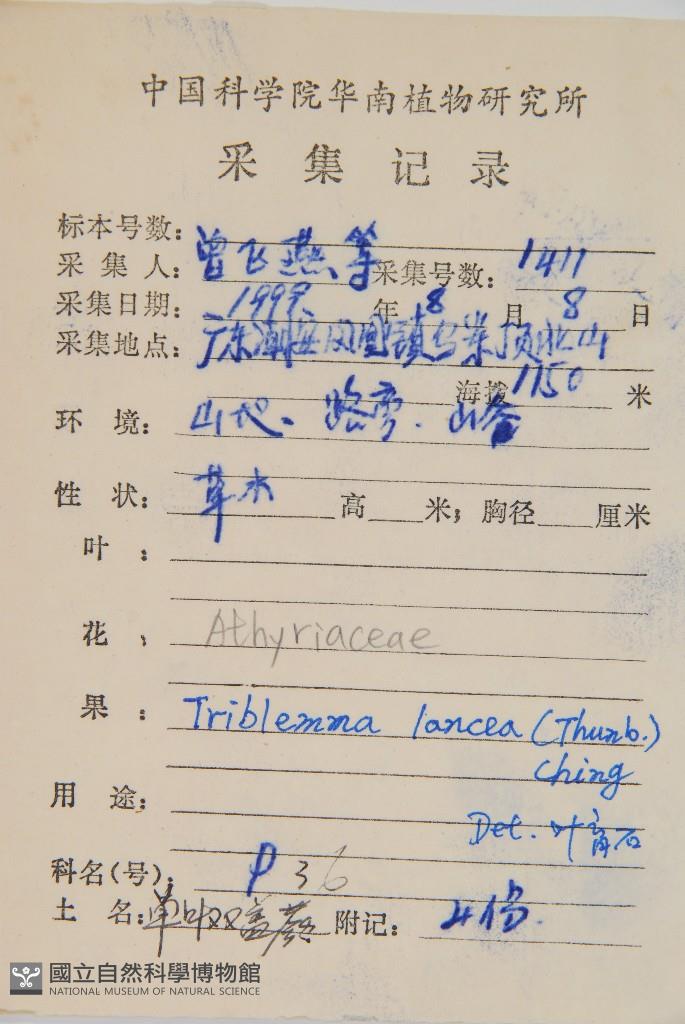 中国科学院华南植物研究所
采集记录
标本号数:
采集人: 曾飞燕等 采集号数: 1411
采集日期: 1999 年 8 月 8 日
采集地点: 广东潮安凤凰镇乌岽顶北山
海拨 1150 米
环境: 山地、路旁、山谷
性状: 草本 高 米; 胸径 厘米
叶:
花: Athyriaceae
果: Triblemma lancea (Thunb.)
Ching
用途:
Det. 叶育石
科名(号): P36
土名: 单叶双盖蕨 附记: 4份.
國立自然科學博物館
NATIONAL MUSEUM OF NATURAL SCIENCE